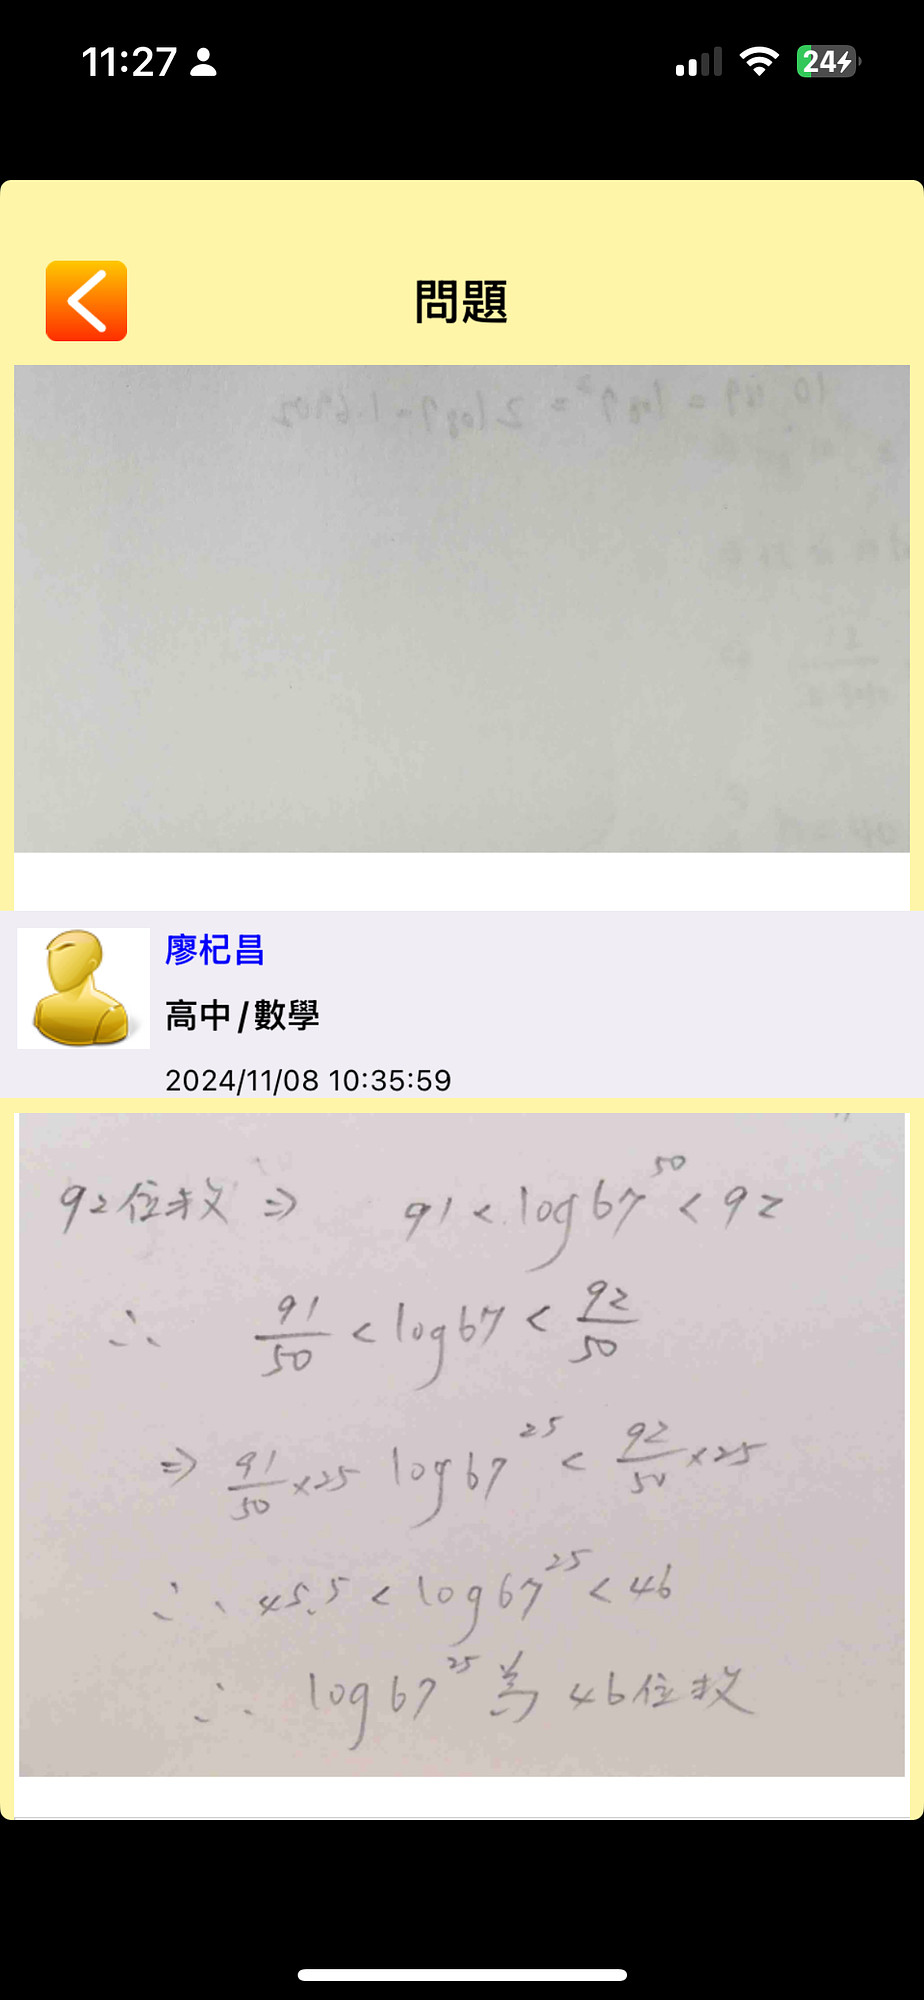 11:27
24
問題
10 49 = log 7² = 2 log 7 = 1.6902
廖杞昌
高中/數學
2024/11/08 10:35:59
92位数 ⇒ 91 < log67^50 < 92
∴ 91/50 < log67 < 92/50
⇒ 91/50 ×25 log67^25 < 92/50 ×25
∴ 45.5 < log67^25 < 46
∴ log67^25 為 46位数